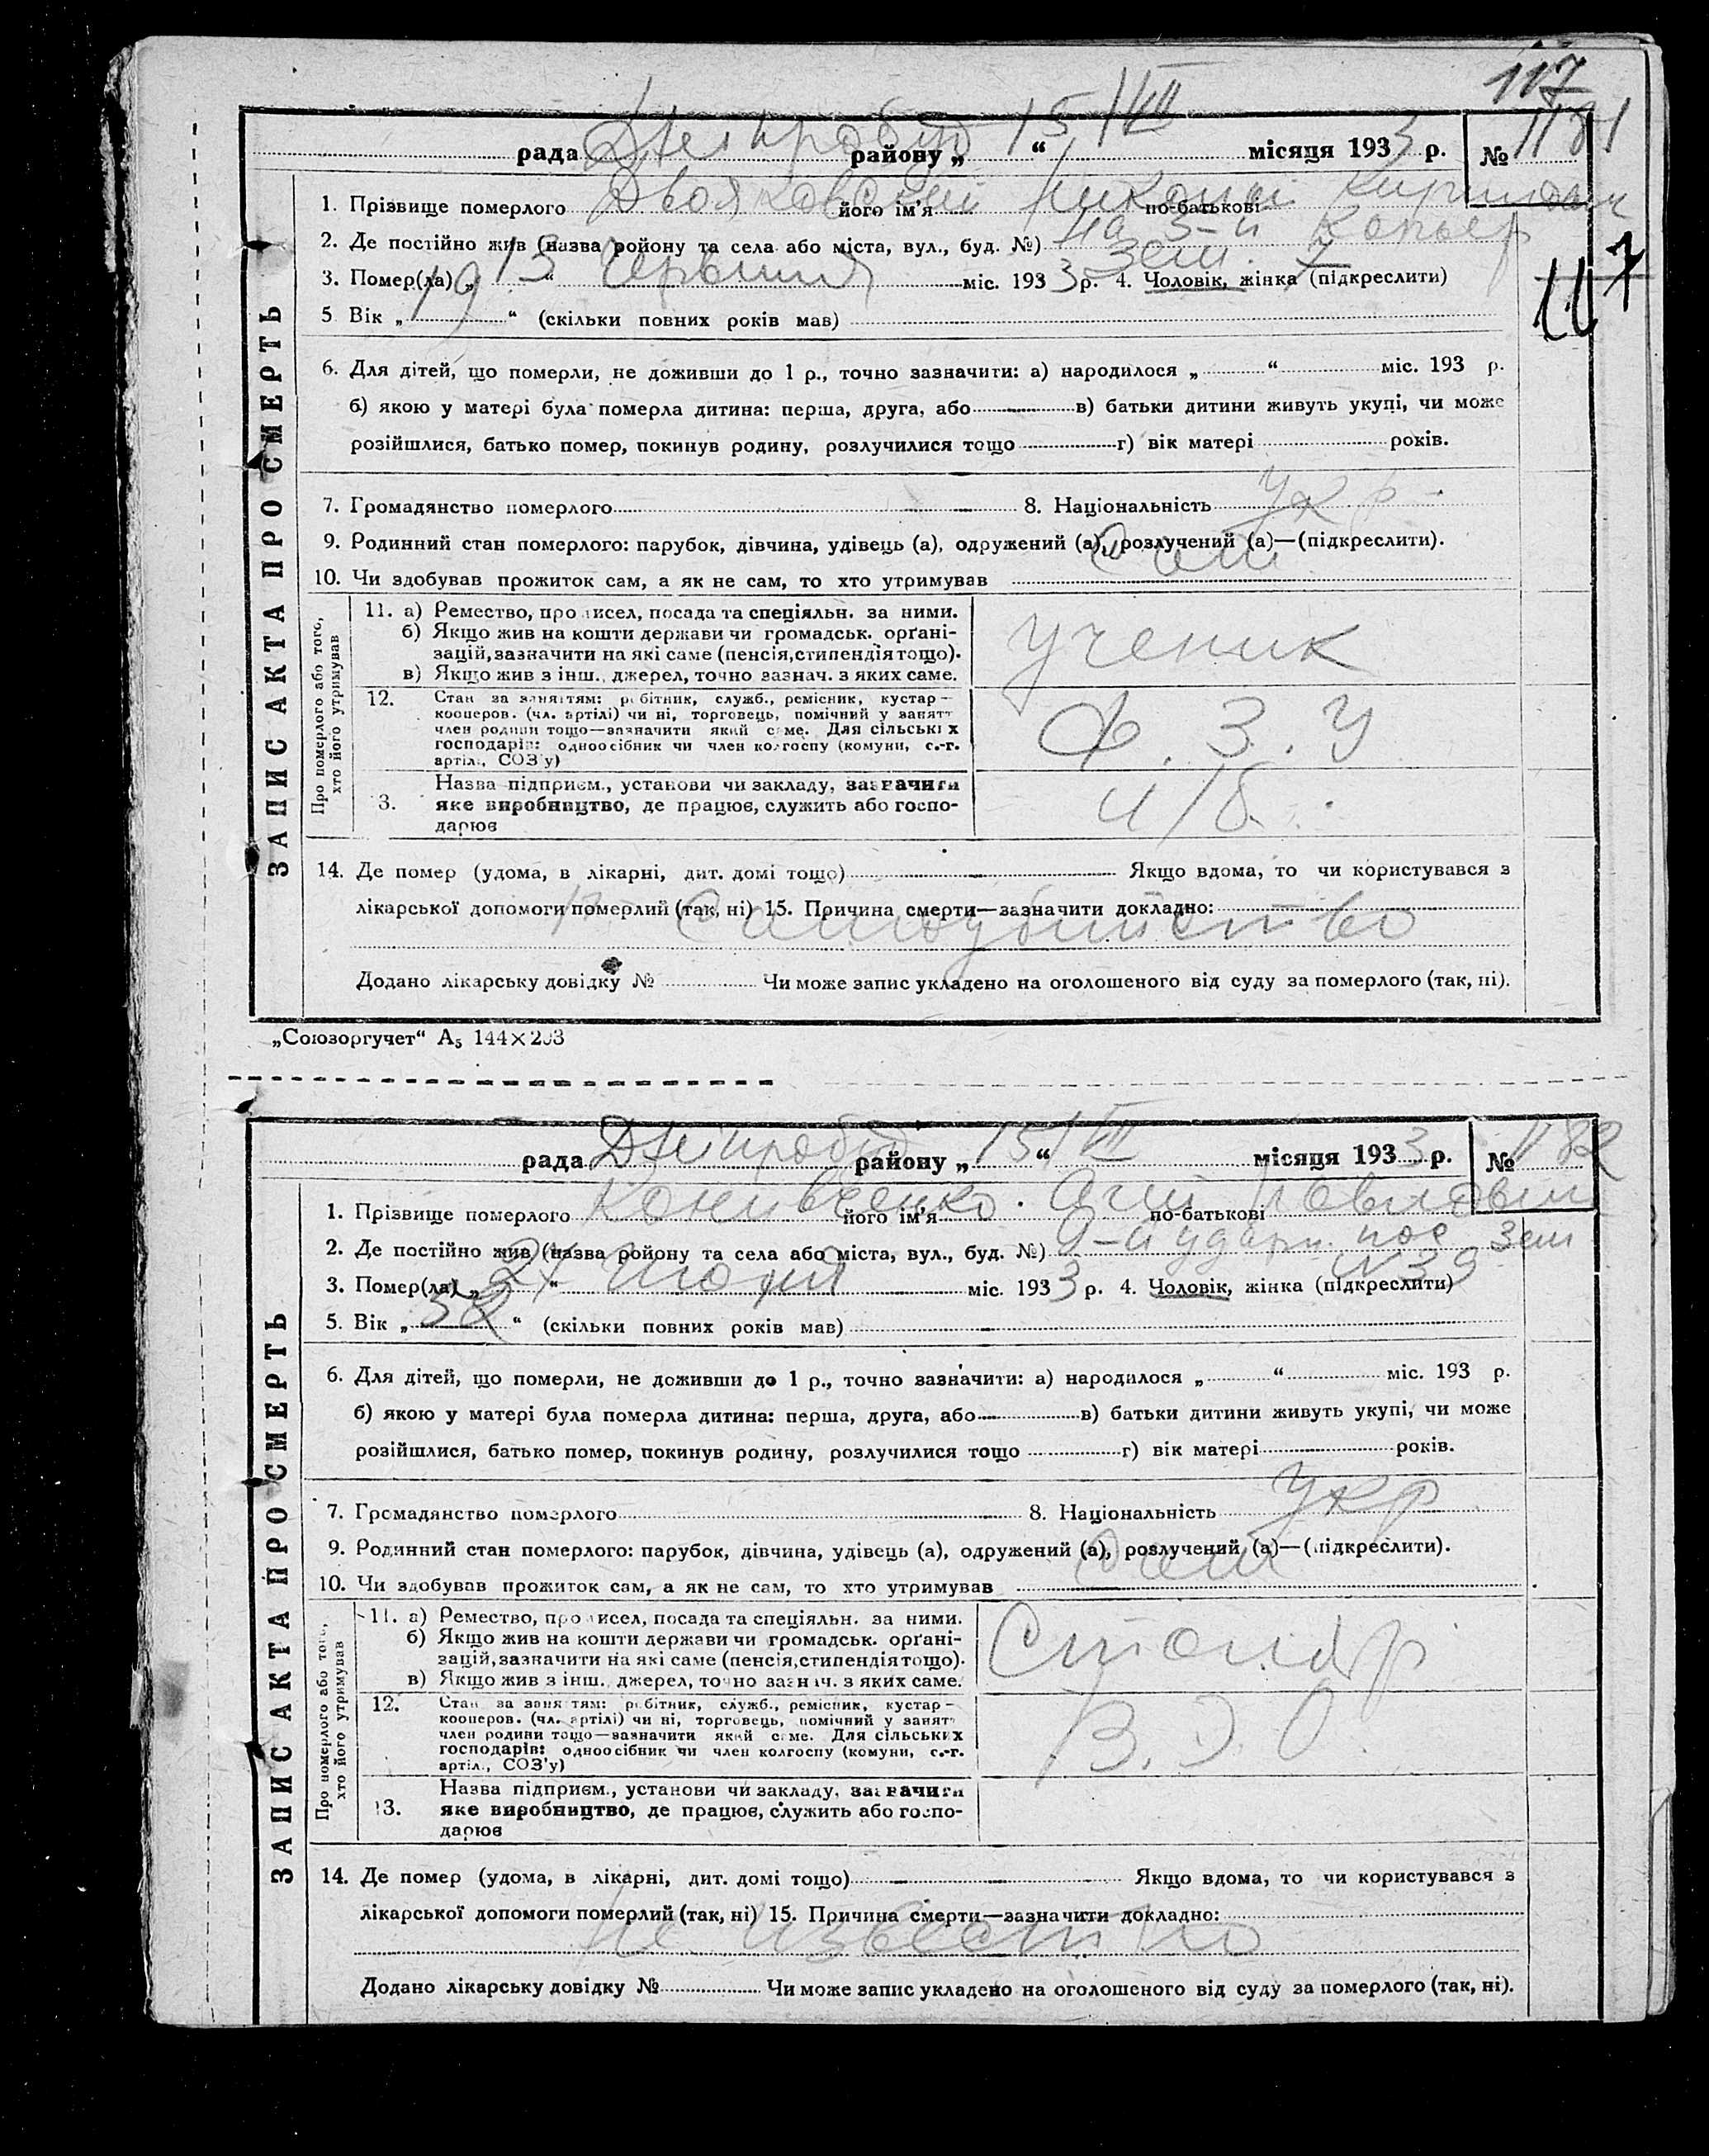 117
рада Дніпробуд району „ 15 “ VII місяця 1933 р. № 1181
1. Прізвище померлого Двояковский його ім’я Николай по-батькові
2. Де постійно жив (назва ройону та села або міста, вул., буд. №) на 3-й Карьер
Зем. 7
3. Помер(ла) „ 13 “ Червния міс. 1933 р. 4. Чоловік, жінка (підкреслити)
117
5 Вік „ 19 “ (скільки повних років мав)
6. Для дітей, що померли, не доживши до 1 р., точно зазначити: а) народилося „ “ міс. 193 р.
б) якою у матері була померла дитина: перша, друга, або в) батьки дитини живуть укупі, чи може
розійшлися, батько помер, покинув родину, розлучилися тощо г) вік матері років.
7. Громадянство померлого 8. Національність Укр
9. Родинний стан померлого: парубок, дівчина, удівець (а), одружений (а), розлучений (а)—(підкреслити).
10. Чи здобував прожиток сам, а як не сам, то хто утримував Сам
ЗАПИС АКТА ПРО СМЕРТЬ
Про померлого або того,
хто його утримував
11. а) Ремество, промисел, посада та спеціяльн. за ними.
б) Якщо жив на кошти держави чи громадськ. орґані-
зацій, зазначити на які саме (пенсія, стипендія тощо).
в) Якщо жив з інш. джерел, точно зазнач. з яких саме.
ученик
12. Стан за заняттям: робітник, служб., ремісник, кустар—
кооперов. (чл. артілі) чи ні, торговець, помічний у занятт
член родини тощо—зазначити який саме. Для сільських
господарів: одноосібник чи член колгоспу (комуни, с.-г.
артіл., СОЗ’у)
Ф. З. У
Назва підприєм., установи чи закладу, зазначити
3. яке виробництво, де працює, служить або госпо-
дарює
14. Де помер (удома, в лікарні, дит. домі тощо) Якщо вдома, то чи користувався з
лікарської допомоги померлий (так, ні) 15. Причина смерти—зазначити докладно:
Самоубийство
Додано лікарську довідку № Чи може запис укладено на оголошеного від суду за померлого (так, ні).
„Союзоргучет“ А5 144×203
рада Дніпробуд району „ 15 “ VII місяця 1933 р. № 1182
1. Прізвище померлого його ім’я по-батькові
2. Де постійно жив (назва ройону та села або міста, вул., буд. №) ударн. пос Зем
№39
3. Помер(ла) „ “ Июня міс. 1933 р. 4. Чоловік, жінка (підкреслити)
5. Вік „ 32 “ (скільки повних років мав)
6. Для дітей, що померли, не доживши до 1 р., точно зазначити: а) народилося „ “ міс. 193 р.
б) якою у матері була померла дитина: перша, друга, або в) батьки дитини живуть укупі, чи може
розійшлися, батько помер, покинув родину, розлучилися тощо г) вік матері років.
7. Громадянство померлого 8. Національність Укр
9. Родинний стан померлого: парубок, дівчина, удівець (а), одружений (а), розлучений (а)—(підкреслити).
10. Чи здобував прожиток сам, а як не сам, то хто утримував Сам
ЗАПИС АКТА ПРО СМЕРТЬ
Про померлого або того,
хто його утримував
11. а) Ремество, промисел, посада та спеціяльн. за ними.
б) Якщо жив на кошти держави чи громадськ. орґані-
зацій, зазначити на які саме (пенсія, стипендія тощо).
в) Якщо жив з інш. джерел, точно зазнач. з яких саме.
Столяр
12. Стан за заняттям: робітник, служб., ремісник, кустар—
кооперов. (чл. артілі) чи ні, торговець, помічний у занятт
член родини тощо—зазначити який саме. Для сільських
господарів: одноосібник чи член колгоспу (комуни, с.-г.
артіл., СОЗ’у)
В. Э. О.
Назва підприєм., установи чи закладу, зазначити
13. яке виробництво, де працює, служить або госпо-
дарює
14. Де помер (удома, в лікарні, дит. домі тощо) Якщо вдома, то чи користувався з
лікарської допомоги померлий (так, ні) 15. Причина смерти—зазначити докладно:
Не известно
Додано лікарську довідку № Чи може запис укладено на оголошеного від суду за померлого (так, ні).